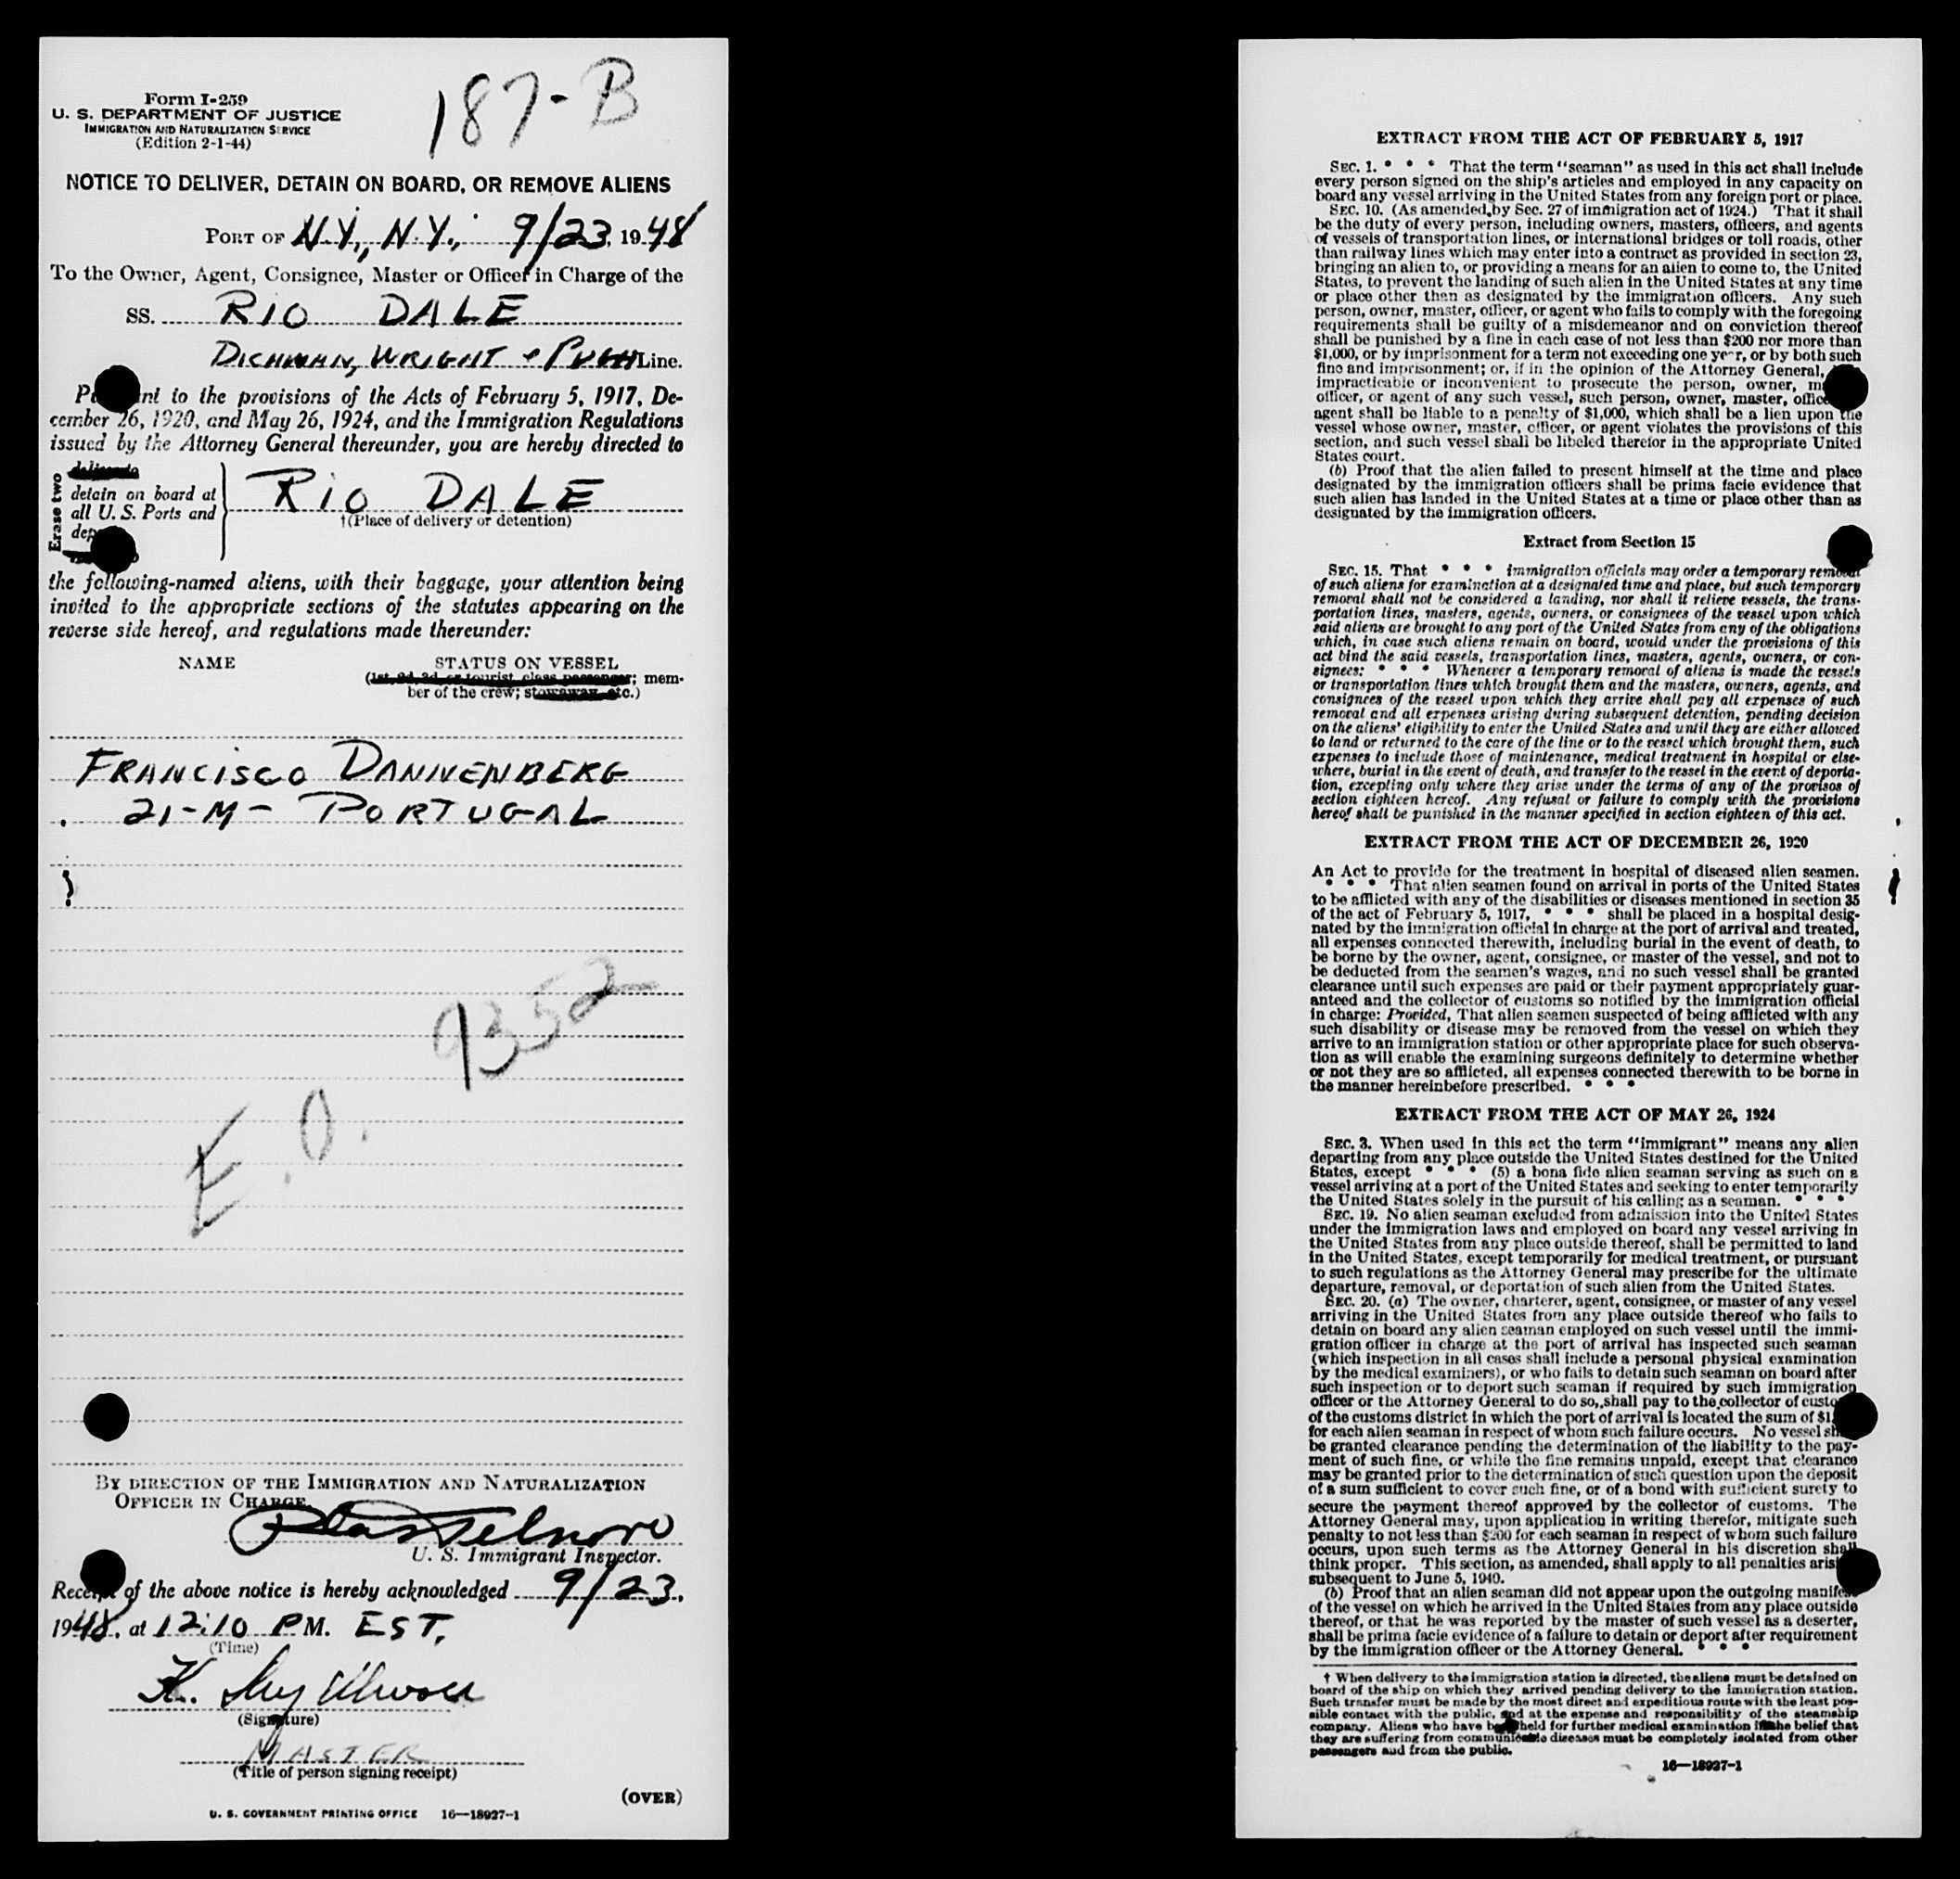 187-B
Form I-259
U. S. DEPARTMENT OF JUSTICE
IMMIGRATION AND NATURALIZATION SERVICE
(Edition 2-1-44)
NOTICE TO DELIVER, DETAIN ON BOARD, OR REMOVE ALIENS
PORT OF N.Y., N.Y., 9/23, 1948
To the Owner, Agent, Consignee, Master or Officer in Charge of the
SS. RIO DALE
DICHMAN, WRIGHT & PUGH Line.
to the provisions of the Acts of February 5, 1917, De-
cember 26, 1920, and May 26, 1924, and the Immigration Regulations
issued by the Attorney General thereunder, you are hereby directed to
Erase two
deliver to
detain on board at
all U. S. Ports and
RIO DALE
†(Place of delivery or detention)
the following-named aliens, with their baggage, your attention being
invited to the appropriate sections of the statutes appearing on the
reverse side hereof, and regulations made thereunder:
NAME STATUS ON VESSEL
(1st, 2d, 3d, or tourist class passenger; mem-
ber of the crew; stowaway, etc.)
FRANCISCO DANNENBERG
21-M- PORTUGAL
E.O. 9352
BY DIRECTION OF THE IMMIGRATION AND NATURALIZATION
OFFICER IN CHARGE.
U. S. Immigrant Inspector.
Receipt of the above notice is hereby acknowledged 9/23,
1948, at 12:10 P M. EST,
(Time)
K.
(Signature)
MASTER
(Title of person signing receipt)
(OVER)
U. S. GOVERNMENT PRINTING OFFICE 16—18927-1
EXTRACT FROM THE ACT OF FEBRUARY 5, 1917
SEC. 1. * * * That the term "seaman" as used in this act shall include
every person signed on the ship's articles and employed in any capacity on
board any vessel arriving in the United States from any foreign port or place.
SEC. 10. (As amended by Sec. 27 of immigration act of 1924.) That it shall
be the duty of every person, including owners, masters, officers, and agents
of vessels of transportation lines, or international bridges or toll roads, other
than railway lines which may enter into a contract as provided in section 23,
bringing an alien to, or providing a means for an alien to come to, the United
States, to prevent the landing of such alien in the United States at any time
or place other than as designated by the immigration officers. Any such
person, owner, master, officer, or agent who fails to comply with the foregoing
requirements shall be guilty of a misdemeanor and on conviction thereof
shall be punished by a fine in each case of not less than $200 nor more than
$1,000, or by imprisonment for a term not exceeding one year, or by both such
fine and imprisonment; or, if in the opinion of the Attorney General,
impracticable or inconvenient to prosecute the person, owner,
officer, or agent of any such vessel, such person, owner, master, officer
agent shall be liable to a penalty of $1,000, which shall be a lien upon the
vessel whose owner, master, officer, or agent violates the provisions of this
section, and such vessel shall be libeled therefor in the appropriate United
States court.
(b) Proof that the alien failed to present himself at the time and place
designated by the immigration officers shall be prima facie evidence that
such alien has landed in the United States at a time or place other than as
designated by the immigration officers.
Extract from Section 15
SEC. 15. That * * * immigration officials may order a temporary removal
of such aliens for examination at a designated time and place, but such temporary
removal shall not be considered a landing, nor shall it relieve vessels, the trans-
portation lines, masters, agents, owners, or consignees of the vessel upon which
said aliens are brought to any port of the United States from any of the obligations
which, in case such aliens remain on board, would under the provisions of this
act bind the said vessels, transportation lines, masters, agents, owners, or con-
signees: * * * Whenever a temporary removal of aliens is made the vessels
or transportation lines which brought them and the masters, owners, agents, and
consignees of the vessel upon which they arrive shall pay all expenses of such
removal and all expenses arising during subsequent detention, pending decision
on the aliens' eligibility to enter the United States and until they are either allowed
to land or returned to the care of the line or to the vessel which brought them, such
expenses to include those of maintenance, medical treatment in hospital or else-
where, burial in the event of death, and transfer to the vessel in the event of deporta-
tion, excepting only where they arise under the terms of any of the provisos of
section eighteen hereof. Any refusal or failure to comply with the provisions
hereof shall be punished in the manner specified in section eighteen of this act.
EXTRACT FROM THE ACT OF DECEMBER 26, 1920
An Act to provide for the treatment in hospital of diseased alien seamen.
* * * That alien seamen found on arrival in ports of the United States
to be afflicted with any of the disabilities or diseases mentioned in section 35
of the act of February 5, 1917, * * * shall be placed in a hospital desig-
nated by the immigration official in charge at the port of arrival and treated,
all expenses connected therewith, including burial in the event of death, to
be borne by the owner, agent, consignee, or master of the vessel, and not to
be deducted from the seamen's wages, and no such vessel shall be granted
clearance until such expenses are paid or their payment appropriately guar-
anteed and the collector of customs so notified by the immigration official
in charge: Provided, That alien seamen suspected of being afflicted with any
such disability or disease may be removed from the vessel on which they
arrive to an immigration station or other appropriate place for such observa-
tion as will enable the examining surgeons definitely to determine whether
or not they are so afflicted, all expenses connected therewith to be borne in
the manner hereinbefore prescribed. * * *
EXTRACT FROM THE ACT OF MAY 26, 1924
SEC. 3. When used in this act the term "immigrant" means any alien
departing from any place outside the United States destined for the United
States, except * * * (5) a bona fide alien seaman serving as such on a
vessel arriving at a port of the United States and seeking to enter temporarily
the United States solely in the pursuit of his calling as a seaman. * * *
SEC. 19. No alien seaman excluded from admission into the United States
under the immigration laws and employed on board any vessel arriving in
the United States from any place outside thereof, shall be permitted to land
in the United States, except temporarily for medical treatment, or pursuant
to such regulations as the Attorney General may prescribe for the ultimate
departure, removal, or deportation of such alien from the United States.
SEC. 20. (a) The owner, charterer, agent, consignee, or master of any vessel
arriving in the United States from any place outside thereof who fails to
detain on board any alien seaman employed on such vessel until the immi-
gration officer in charge at the port of arrival has inspected such seaman
(which inspection in all cases shall include a personal physical examination
by the medical examiners), or who fails to detain such seaman on board after
such inspection or to deport such seaman if required by such immigration
officer or the Attorney General to do so, shall pay to the collector of customs
of the customs district in which the port of arrival is located the sum of
for each alien seaman in respect of whom such failure occurs. No vessel shall
be granted clearance pending the determination of the liability to the pay-
ment of such fine, or while the fine remains unpaid, except that clearance
may be granted prior to the determination of such question upon the deposit
of a sum sufficient to cover such fine, or of a bond with sufficient surety to
secure the payment thereof approved by the collector of customs. The
Attorney General may, upon application in writing therefor, mitigate such
penalty to not less than $200 for each seaman in respect of whom such failure
occurs, upon such terms as the Attorney General in his discretion shall
think proper. This section, as amended, shall apply to all penalties arising
subsequent to June 5, 1940.
(b) Proof that an alien seaman did not appear upon the outgoing manifest
of the vessel on which he arrived in the United States from any place outside
thereof, or that he was reported by the master of such vessel as a deserter,
shall be prima facie evidence of a failure to detain or deport after requirement
by the immigration officer or the Attorney General. * * *
† When delivery to the immigration station is directed, the aliens must be detained on
board of the ship on which they arrived pending delivery to the immigration station.
Such transfer must be made by the most direct and expeditious route with the least pos-
sible contact with the public, and at the expense and responsibility of the steamship
company. Aliens who have been held for further medical examination in the belief that
they are suffering from communicable diseases must be completely isolated from other
passengers and from the public.
16—18927-1